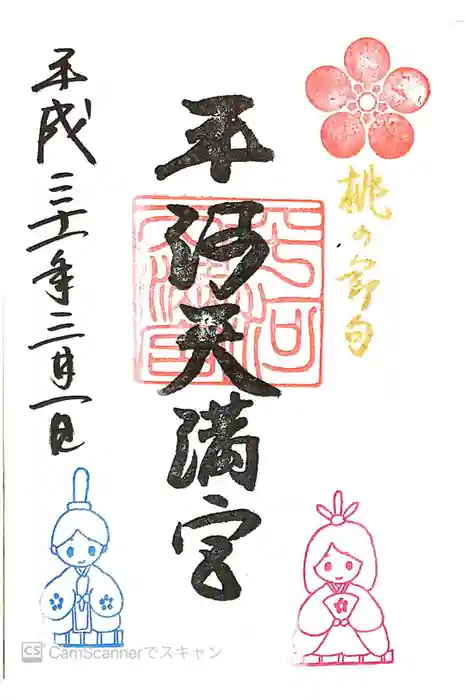 桃の節句
平河天満宮
平河
天満宮
平成三十一年三月一日
CS CamScannerでスキャン